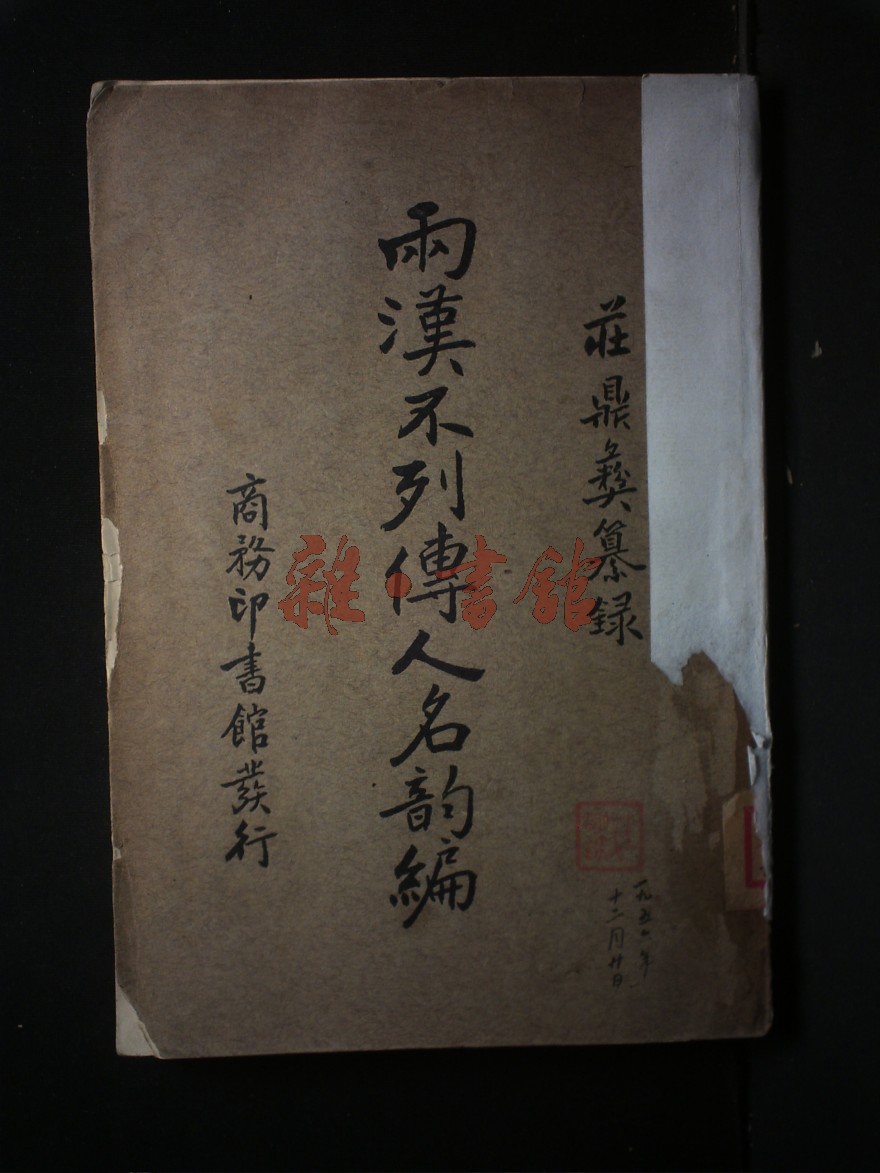 莊鼎彝纂録
兩漢不列傳人名韵編
商務印書館發行
雜·書館
十二月廿日